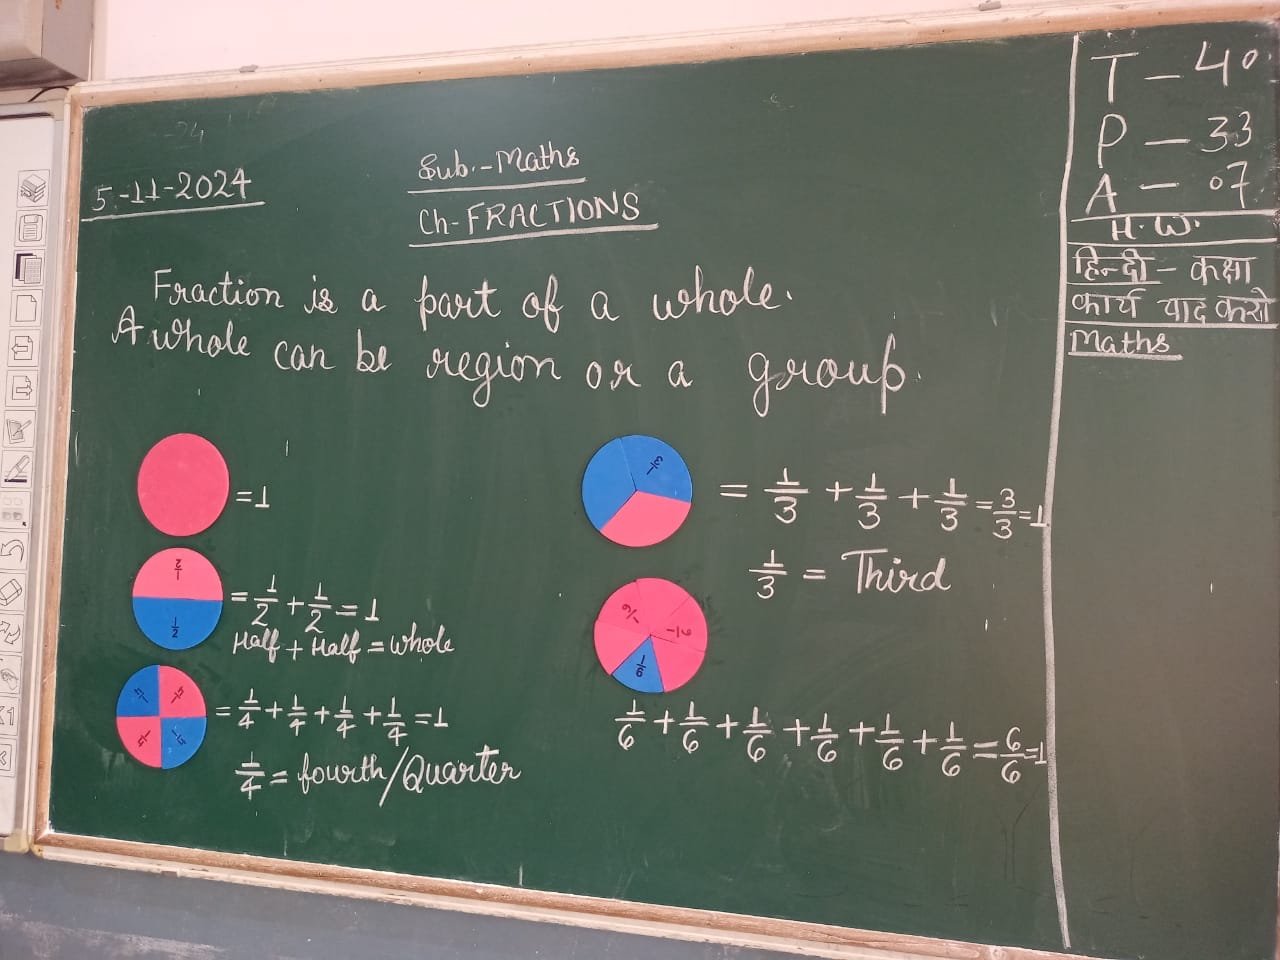 5-11-2024
Sub.-Maths
Ch-FRACTIONS
Fraction is a part of a whole.
A whole can be region or a group.
=1
1/2
1/2
= 1/2 + 1/2 = 1
Half + Half = whole
1/4 1/4
1/4 1/4
= 1/4 + 1/4 + 1/4 + 1/4 = 1
1/4 = fourth/Quarter
1/3
= 1/3 + 1/3 + 1/3 = 3/3 = 1
1/3 = Third
1/6 1/6
1/6
1/6 + 1/6 + 1/6 + 1/6 + 1/6 + 1/6 = 6/6 = 1
T - 40
P - 33
A - 07
H.W.
हिन्दी - कक्षा
कार्य याद करो
Maths